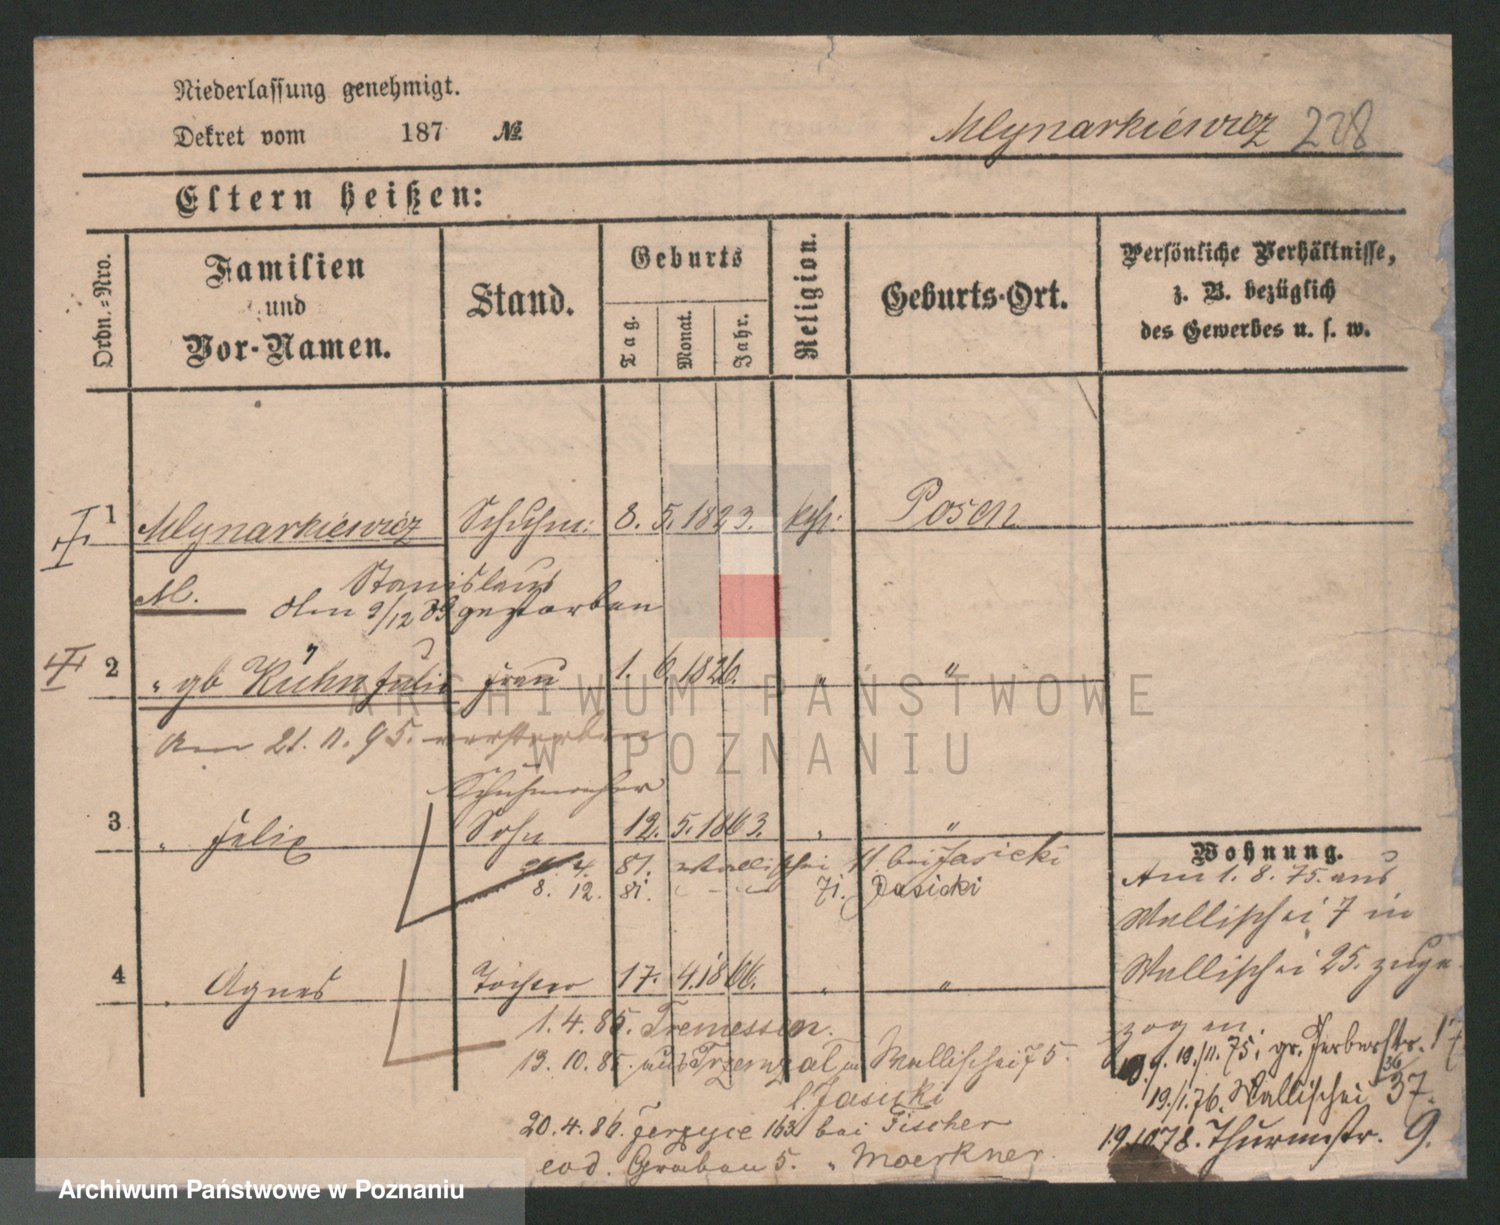 Niederlassung genehmigt.
Dekret vom 187 №
Mlynarkiewicz 228
Eltern heißen:
Ordn.-Nro.
Familien und Vor-Namen.
Stand.
Geburts
Tag.
Monat.
Jahr.
Religion.
Geburts-Ort.
Persönliche Verhältnisse,
z. B. bezüglich
des Gewerbes u. s. w.
1 Mlynarkiewicz Schuhm: 8. 5. 1823. kth: Posen
M. Stanislaus
Am 9/12 89 gestorben
2 " gb Kühn Julie Frau 1. 6. 1826. " "
Am 21. 11. 95. verstorben
Schuhmacher
3 " Felix Sohn 12. 5. 1863. " "
4. 81. Wallischei 71. bei Jasicki
8. 12. 81. " 71. Jasicki
4 " Agnes Tochter 17. 4. 1866. " "
1. 4. 85. Tremessen.
13. 10. 85. aus Wallischei 75.
b. Jasicki
20. 4. 86. Jerzyce 163 bei Fischer
eod. Graben 5. " Moerkner.
Wohnung.
Am 1. 8. 75. aus
Wallischei 7 in
Wallischei 25. zuge
zogen.
19./11. 75. gr. Gerberstr. 17
19./1. 76. Wallischei 36/37.
19.10.78. Thurmstr. 9.
ARCHIWUM PAŃSTWOWE
W POZNANIU
Archiwum Państwowe w Poznaniu